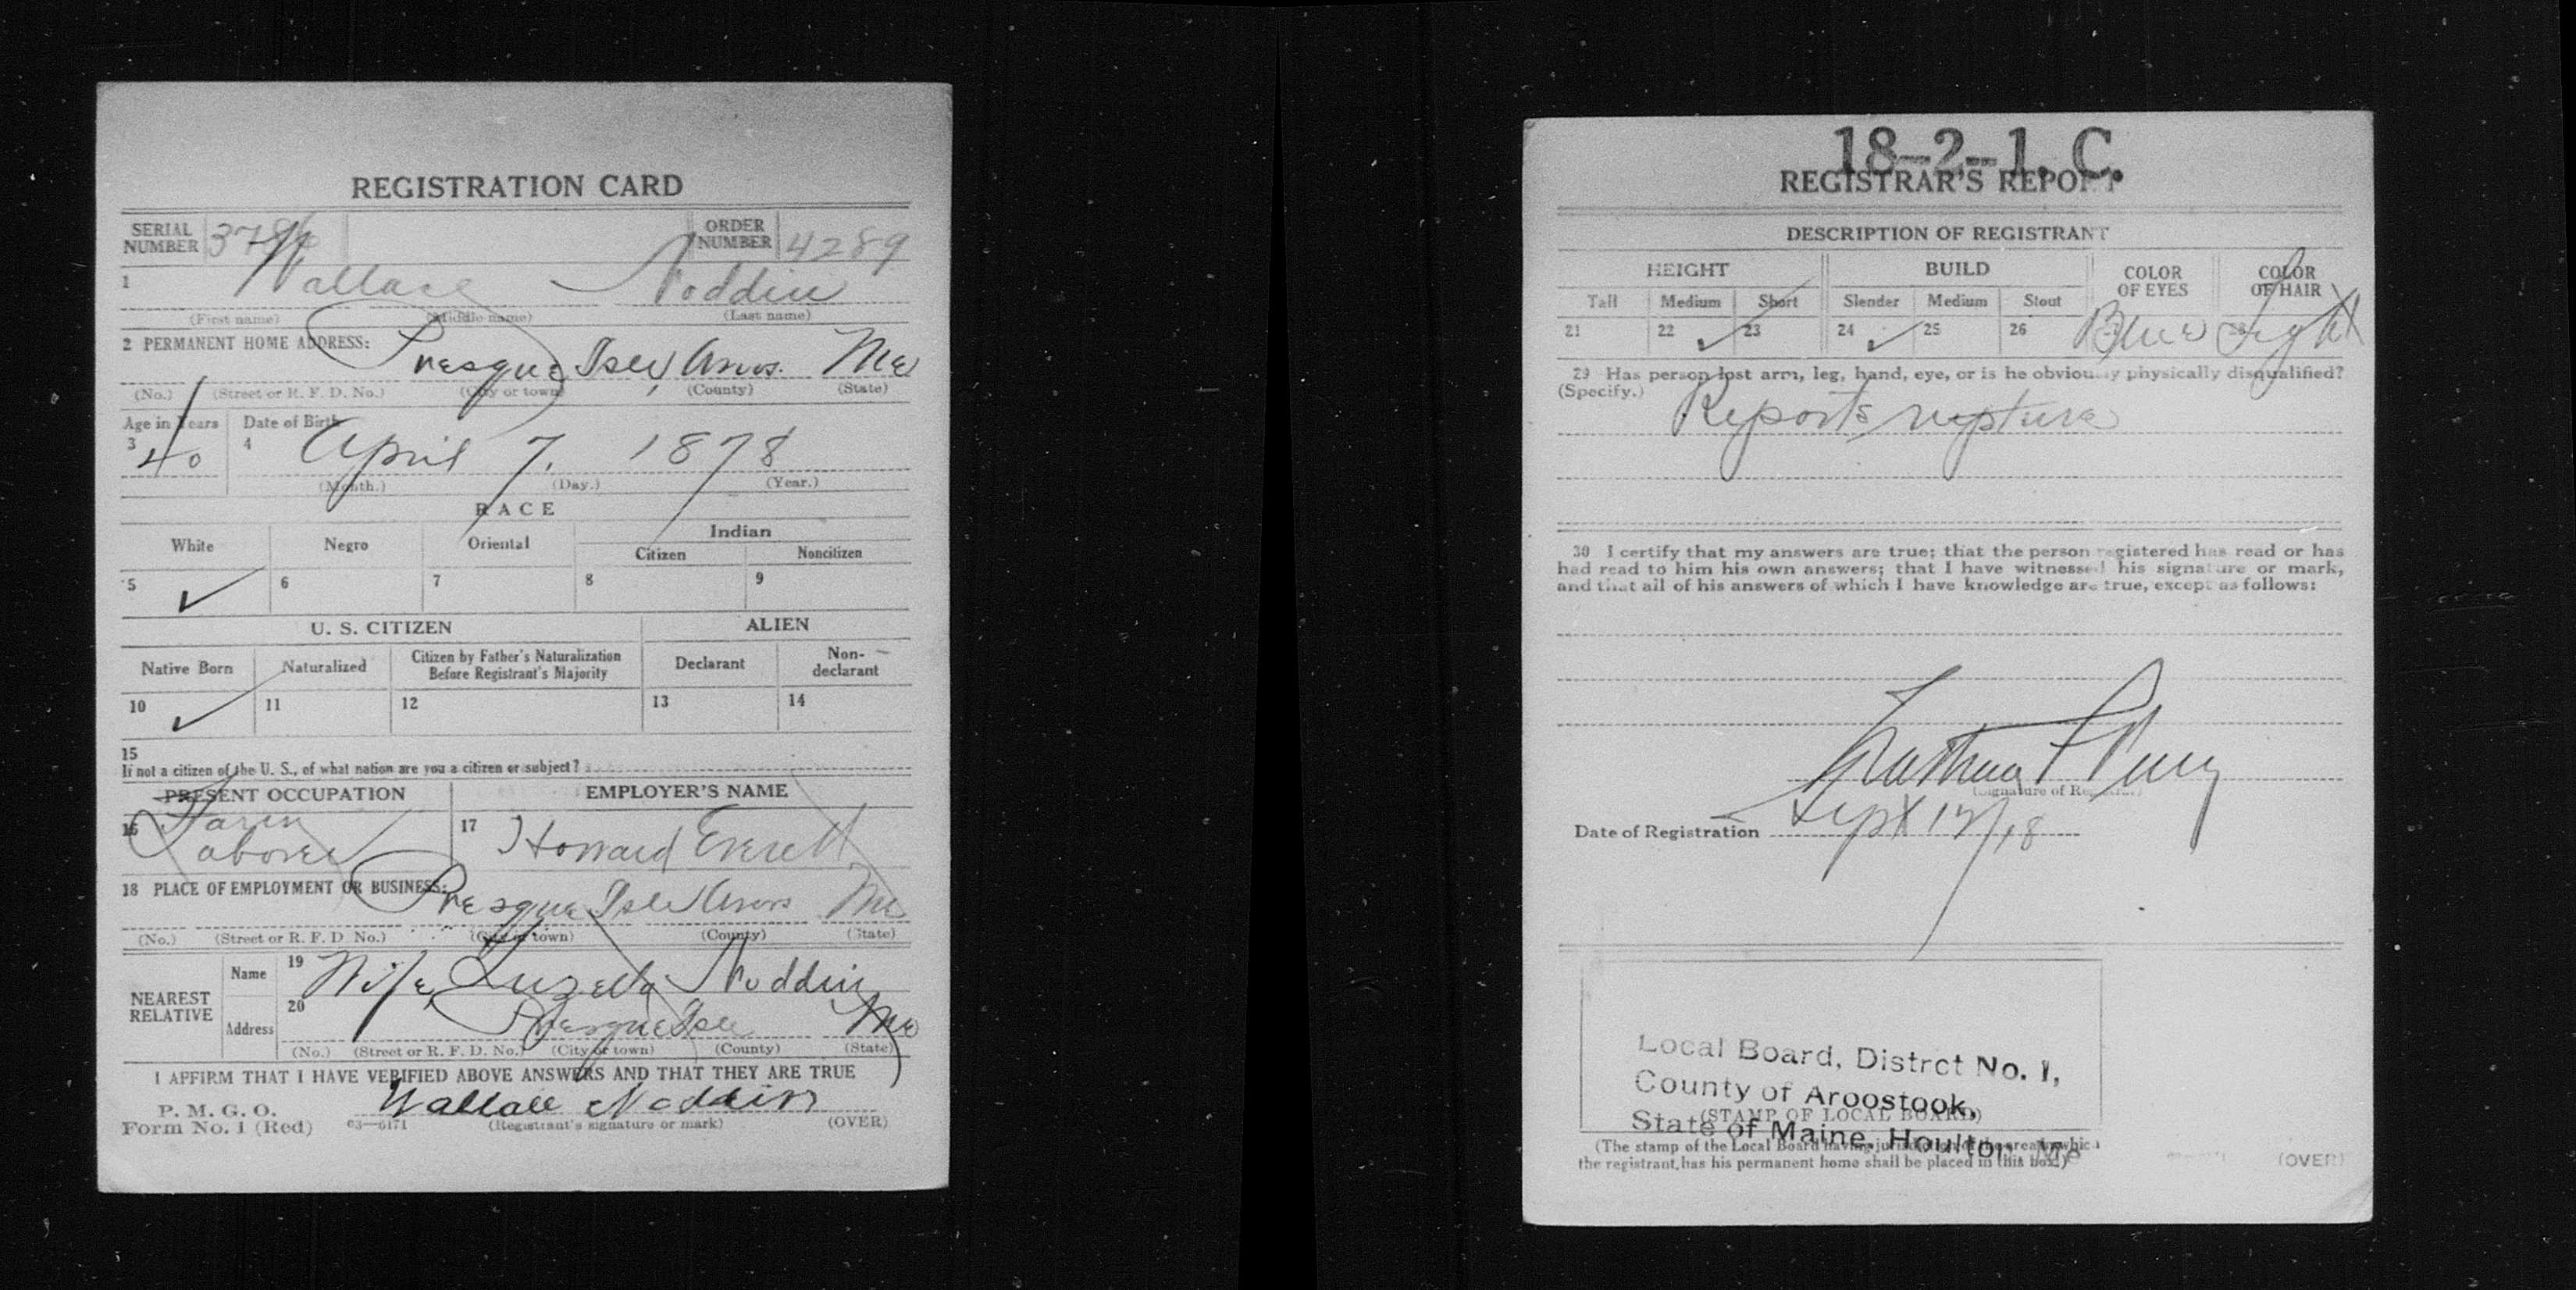 REGISTRATION CARD
SERIAL NUMBER ORDER NUMBER 4289
1 Wallace Noddin
(First name) (Middle name) (Last name)
2 PERMANENT HOME ADDRESS:
Presque Isle, Aroos. Me
(No.) (Street or R. F. D. No.) (City or town) (County) (State)
Age in Years Date of Birth
3 40 4 April 7. 1878
(Month.) (Day.) (Year.)
RACE
White Negro Oriental Indian
Citizen Noncitizen
5 ✓ 6 7 8 9
U. S. CITIZEN ALIEN
Native Born Naturalized Citizen by Father's Naturalization Before Registrant's Majority Declarant Non-declarant
10 ✓ 11 12 13 14
15
If not a citizen of the U. S., of what nation are you a citizen or subject?
PRESENT OCCUPATION EMPLOYER'S NAME
16 Farm Laborer 17 Howard Everett
18 PLACE OF EMPLOYMENT OR BUSINESS:
Presque Isle Aroos Me
(No.) (Street or R. F. D. No.) (City or town) (County) (State)
NEAREST RELATIVE
Name 19 Wife, Luzella Noddin
Address 20 Presque Isle Me
(No.) (Street or R. F. D. No.) (City or town) (County) (State)
I AFFIRM THAT I HAVE VERIFIED ABOVE ANSWERS AND THAT THEY ARE TRUE
P. M. G. O.
Form No. 1 (Red) 03—6171 Wallace Noddin
(Registrant's signature or mark) (OVER)
18-2-1. C.
REGISTRAR'S REPORT
DESCRIPTION OF REGISTRANT
HEIGHT BUILD COLOR OF EYES COLOR OF HAIR
Tall Medium Short Slender Medium Stout
21 22 ✓ 23 24 ✓ 25 26 Blue Light
29 Has person lost arm, leg, hand, eye, or is he obviously physically disqualified?
(Specify.) Reports rupture
30 I certify that my answers are true; that the person registered has read or has
had read to him his own answers; that I have witnessed his signature or mark,
and that all of his answers of which I have knowledge are true, except as follows:
(Signature of Registrar)
Date of Registration Sept 12/18
Local Board, Distrct No. 1,
County of Aroostook,
State of Maine, Houlton, Me
(STAMP OF LOCAL BOARD)
(The stamp of the Local Board having jurisdiction of the area in which
the registrant has his permanent home shall be placed in this box.)
(OVER)